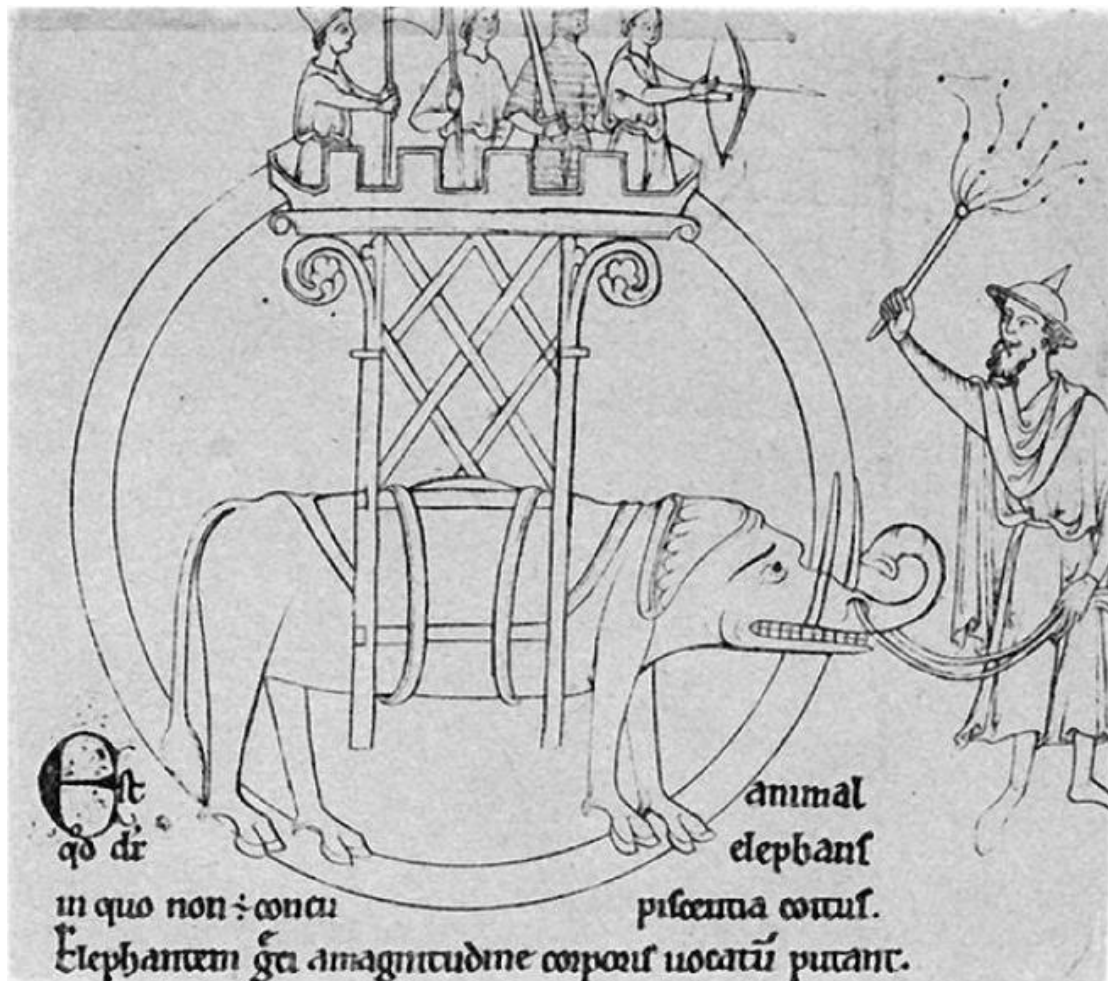 Est animal
qď dr̄ elephans
in quo non ÷ concu piscentia coitus.
Elephantem gͤci amagnitudine corporis uocatū putant.